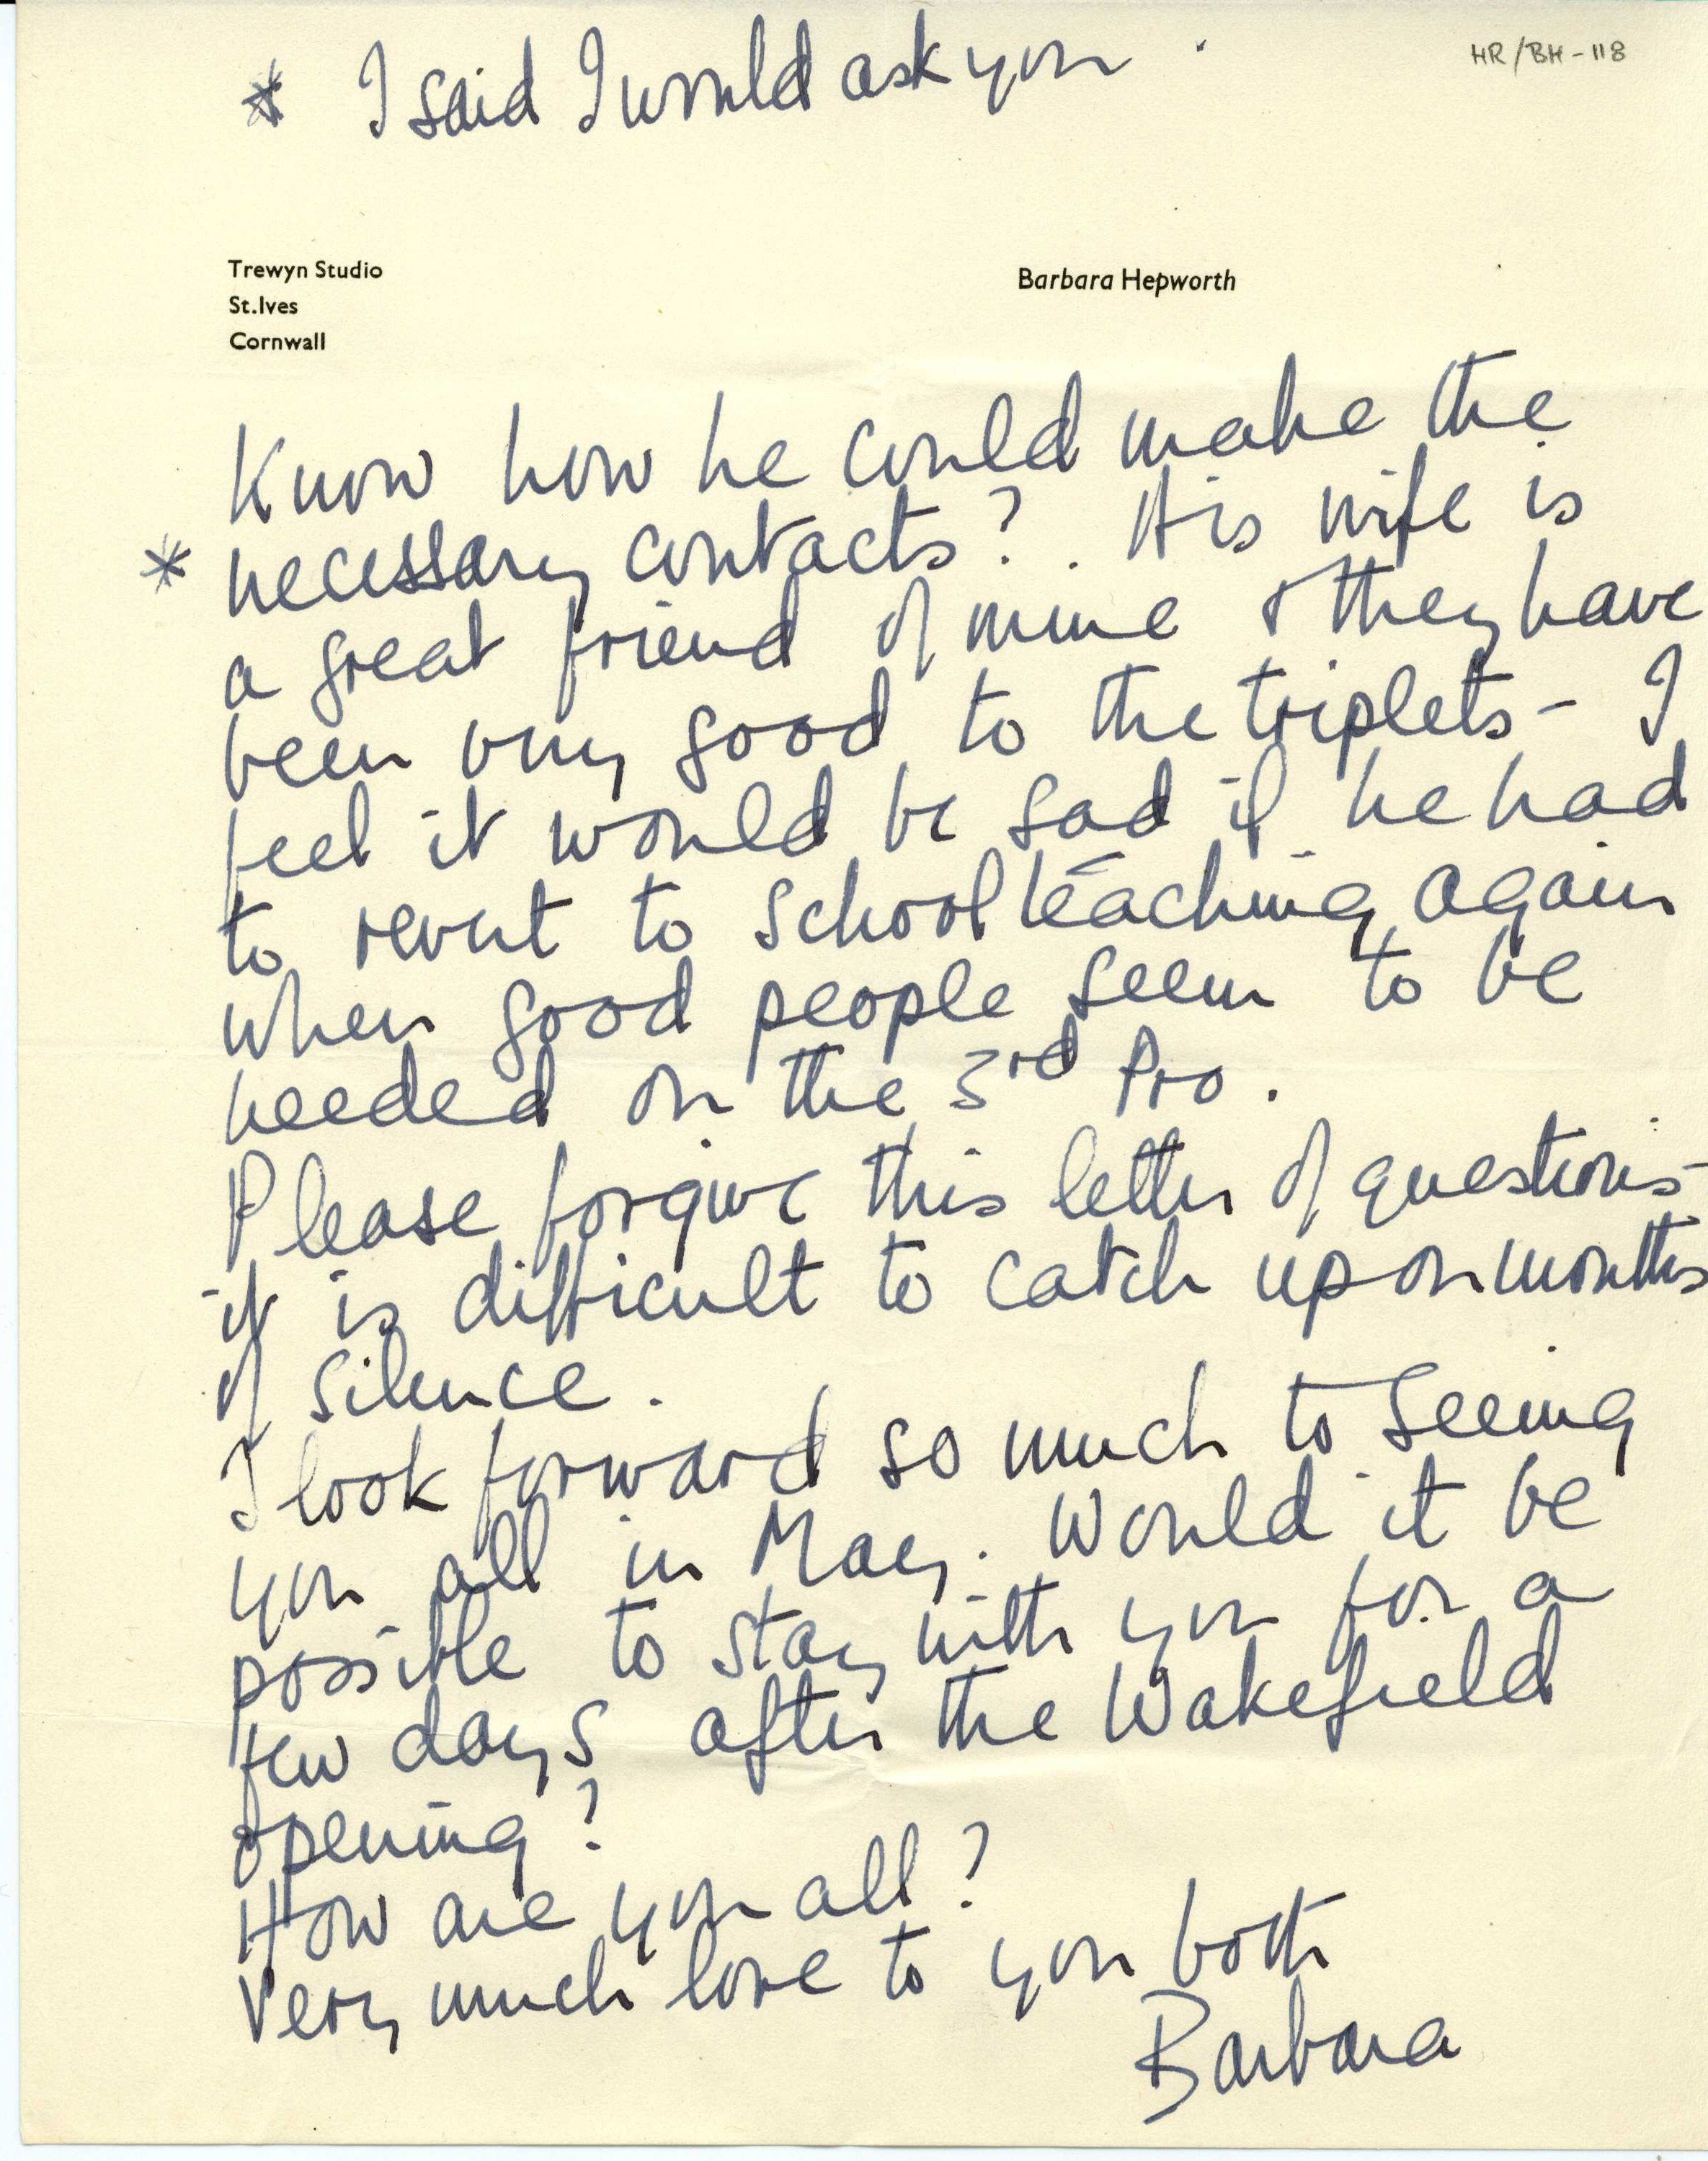 * I said I would ask you.
HR/BH-118
Trewyn Studio
St.Ives
Cornwall
Barbara Hepworth
Know how he could make the
* necessary contacts?. His wife is
a great friend of mine & they have
been very good to the triplets - I
feel it would be sad if he had
to revert to school teaching again
when good people seem to be
needed on the 3rd Pro.
Please forgive this letter of questions -
it is difficult to catch up on months
of silence.
I look forward so much to seeing
you all in May. Would it be
possible to stay with you for a
few days after the Wakefield
opening?
How are you all?
Very much love to you both
Barbara